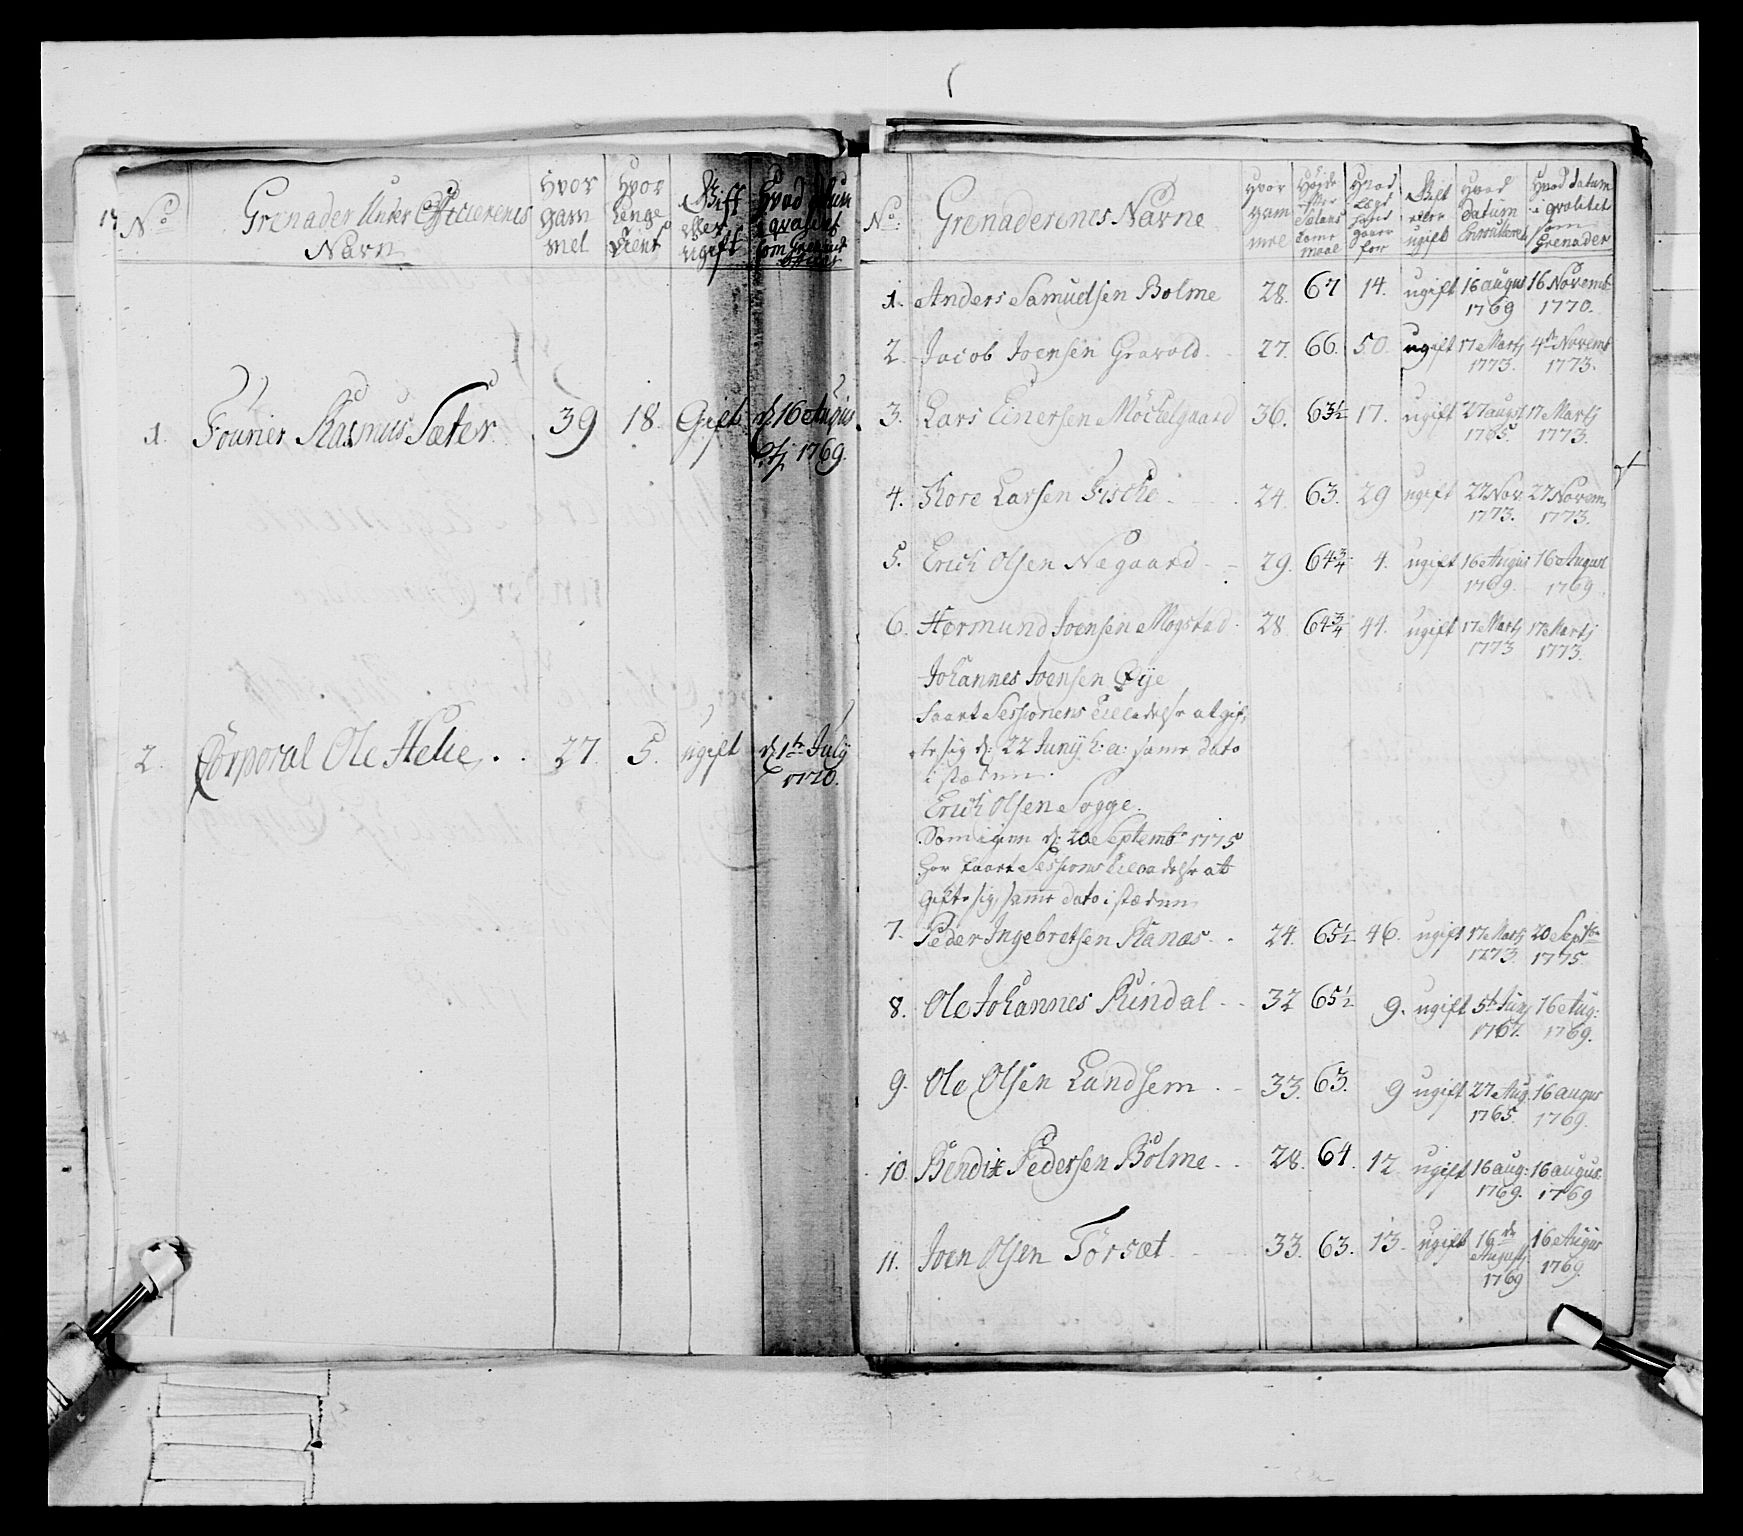 No Grenader Under Officierenes Navn Hvor gammel Hvor lenge tient Gift eller ugift
1. Fourier Rasmus Sæter 39 18. Gift d. 16 Augus 1769.
2. Corporal Ole Helie 27. 5. ugift d. 1te July 1770.
No Grenaderenes Navne Hvor gammel Gift eller ugift Hvad datum Hvad datum i qvalitet som Grenader
1. Anders Samuelsen Bolme 28. 67 14. ugift 16 augus 1769 16 Novemb 1770.
2. Jacob Joensen Gravold 27. 66. 50. ugift 17 Martj 1773. 4de Novemb 1773.
3. Lars Einersen Möckelgaard 36. 63½ 17. ugift 27 augst 1765. 17 Martj 1773.
4. Tore Larsen Fiske 24. 63. 29 ugift 22 Nov. 1773. 22 Novem 1773.
5. Erich Olsen Negaard 29. 64¾ 4. ugift 16 Augus 1769. 16 August 1769
6. Hormund Joensen Mogstad 28. 64¾ 44. ugift 17 Martj 1773 17 Martj 1773.
Johannes Joensen Øije
faaet Sessionens Tilladelse at gif,
te sig d: 22 Junij h: a: samme dato
i stæden.
Erich Olsen Sogge.
Som igien d: 20 Septembr 1775
har faaet Sessions tilladelse at
Gifte sig, samme dato i stæden
7. Peder Ingebretsen Ranæs 24. 65½ 46. ugift 17 Martj 1773. 20 Septbr 1775
8. Ole Johannes Rindal 32 65½ 9. ugift 5te Junj 1767. 16 Aug: 1769.
9. Ole Olsen Landsem 33. 63. 9 ugift 27 Aug. 1765. 16 augus 1769.
10 Bendix Pedersen Bolme 28. 64. 12 ugift 16 aug: 1769. 16 augus. 1769
11. Joen Olsen Torsæt 33. 63. 13. ugift 16de Augustj 1769 16 Augus 1769.